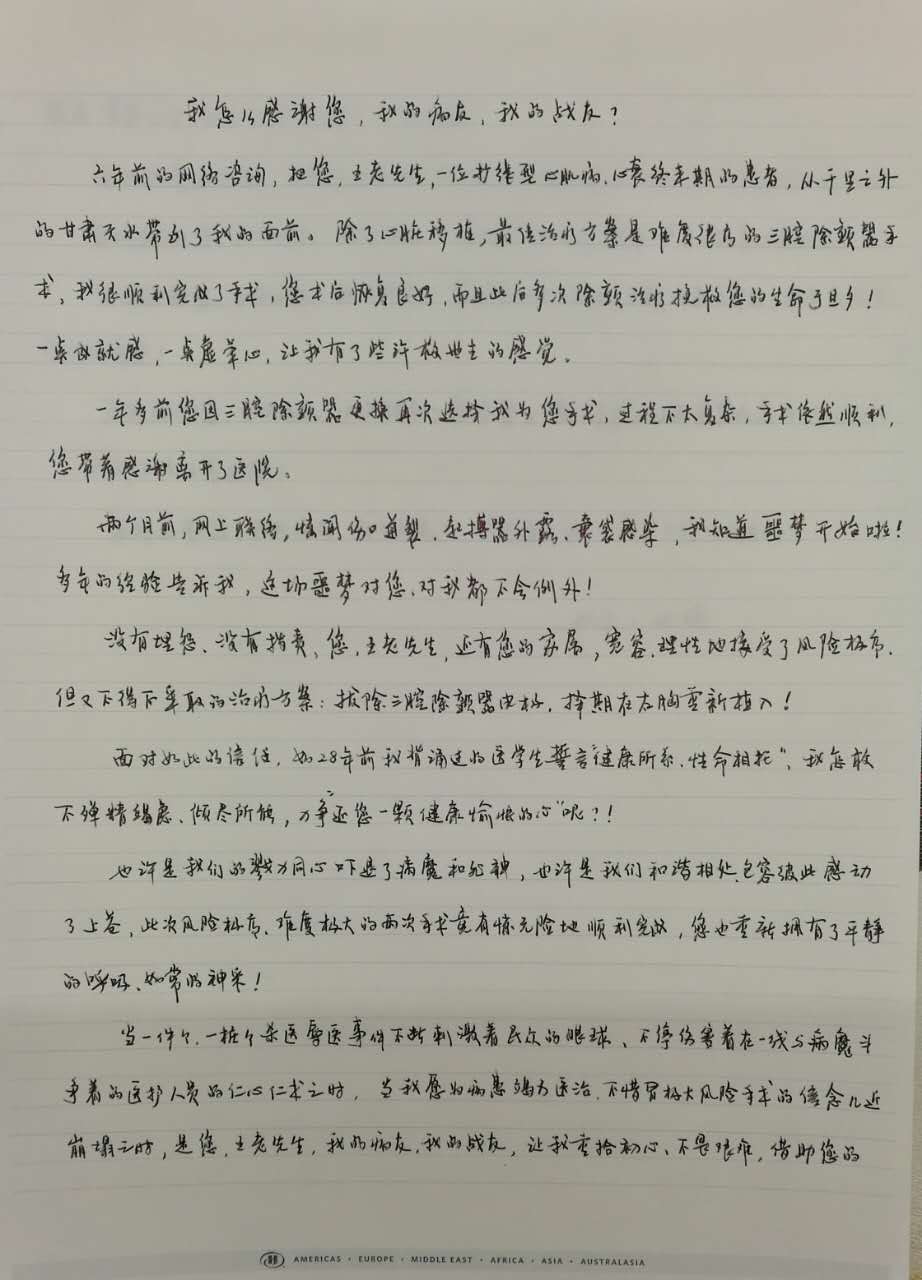 我怎么感谢您，我的病友，我的战友？
六年前的网络咨询，把您，王老先生，一位扩张型心肌病、心衰终末期的患者，从千里之外
的甘肃天水带到了我的面前。除了心脏移植，最佳治疗方案是难度很高的三腔除颤器手
术，我很顺利完成了手术，您术后恢复良好，而且此后多次除颤治疗挽救您的生命于旦夕！
一点成就感，一点虚荣心，让我有了些许救世主的感觉。
一年多前您因三腔除颤器更换再次选择我为您手术，过程不太复杂，手术依然顺利，
您带着感谢离开了医院。
两个月前，网上联络，惊闻伤口迸裂、起搏器外露、囊袋感染，我知道噩梦开始啦！
多年的经验告诉我，这场噩梦对您、对我都不会例外！
没有埋怨、没有指责，您，王老先生，还有您的家属，宽容、理性地接受了风险极高、
但又不得不采取的治疗方案：拔除三腔除颤器电极，择期在右胸重新植入！
面对如此的信任，如28年前我背诵过的医学生誓言“健康所系、性命相托”，我怎敢
不殚精竭虑、倾尽所能，力争“还您一颗健康愉悦的心”呢？！
也许是我们的戮力同心吓退了病魔和死神，也许是我们和谐相处、包容彼此感动
了上苍，此次风险极高、难度极大的两次手术竟有惊无险地顺利完成，您也重新拥有了平静
的呼吸、如常的神采！
当一件个、一桩个杀医辱医事件不断刺激着民众的眼球、不停伤害着在一线与病魔斗
争着的医护人员的仁心仁术之时，当我愿为病患竭力医治、不惜冒极大风险手术的信念几近
崩塌之时，是您，王老先生，我的病友，我的战友，让我重拾初心、不畏艰难，借助您的
AMERICAS · EUROPE · MIDDLE EAST · AFRICA · ASIA · AUSTRALASIA